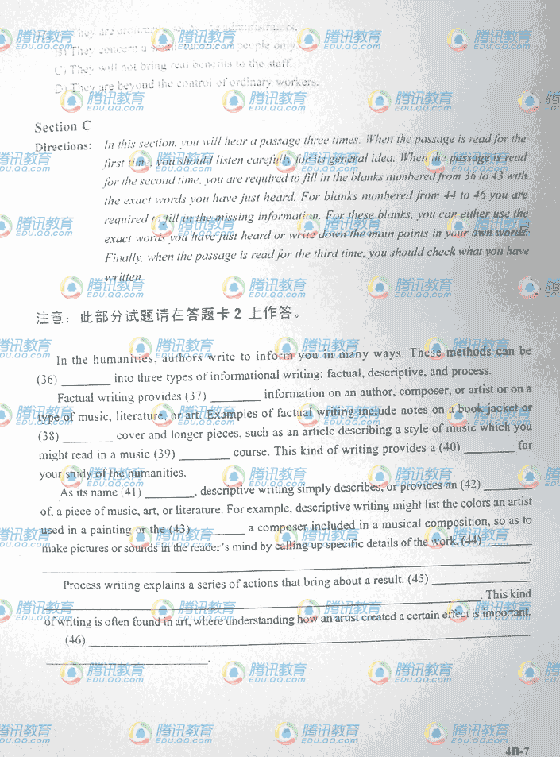 They are
B) They people only
C) They will not bring real to the staff.
D) They are beyond the control of ordinary workers.
Section C
Directions: In this section, you will hear a passage three times. When the passage is read for the
first time, you should listen carefully for its general idea. When the passage is read
for the second time, you are required to fill in the blanks numbered from 36 to 43 with
the exact words you have just heard. For blanks numbered from 44 to 46 you are
required to fill in the missing information. For these blanks, you can either use the
exact words you have just heard or write down the main points in your own words.
Finally, when the passage is read for the third time, you should check what you have
written.
注意：此部分试题请在答题卡 2 上作答。
In the humanities, authors write to inform you in many ways. These methods can be
(36) ________ into three types of informational writing: factual, descriptive, and process.
Factual writing provides (37) ________ information on an author, composer, or artist or on a
type of music, literature, or art. Examples of factual writing include notes on a book jacket or
(38) ________ cover and longer pieces, such as an article describing a style of music which you
might read in a music (39) ________ course. This kind of writing provides a (40) ________ for
your study of the humanities.
As its name (41) ________, descriptive writing simply describes, or provides an (42) ________
of, a piece of music, art, or literature. For example, descriptive writing might list the colors an artist
used in a painting or the (43) ________ a composer included in a musical composition, so as to
make pictures or sounds in the reader's mind by calling up specific details of the work. (44) ________
________.
Process writing explains a series of actions that bring about a result. (45) ________
________. This kind
of writing is often found in art, where understanding how an artist created a certain effect is important.
(46) ________
________.
4B-7
腾讯教育
EDU.QQ.COM